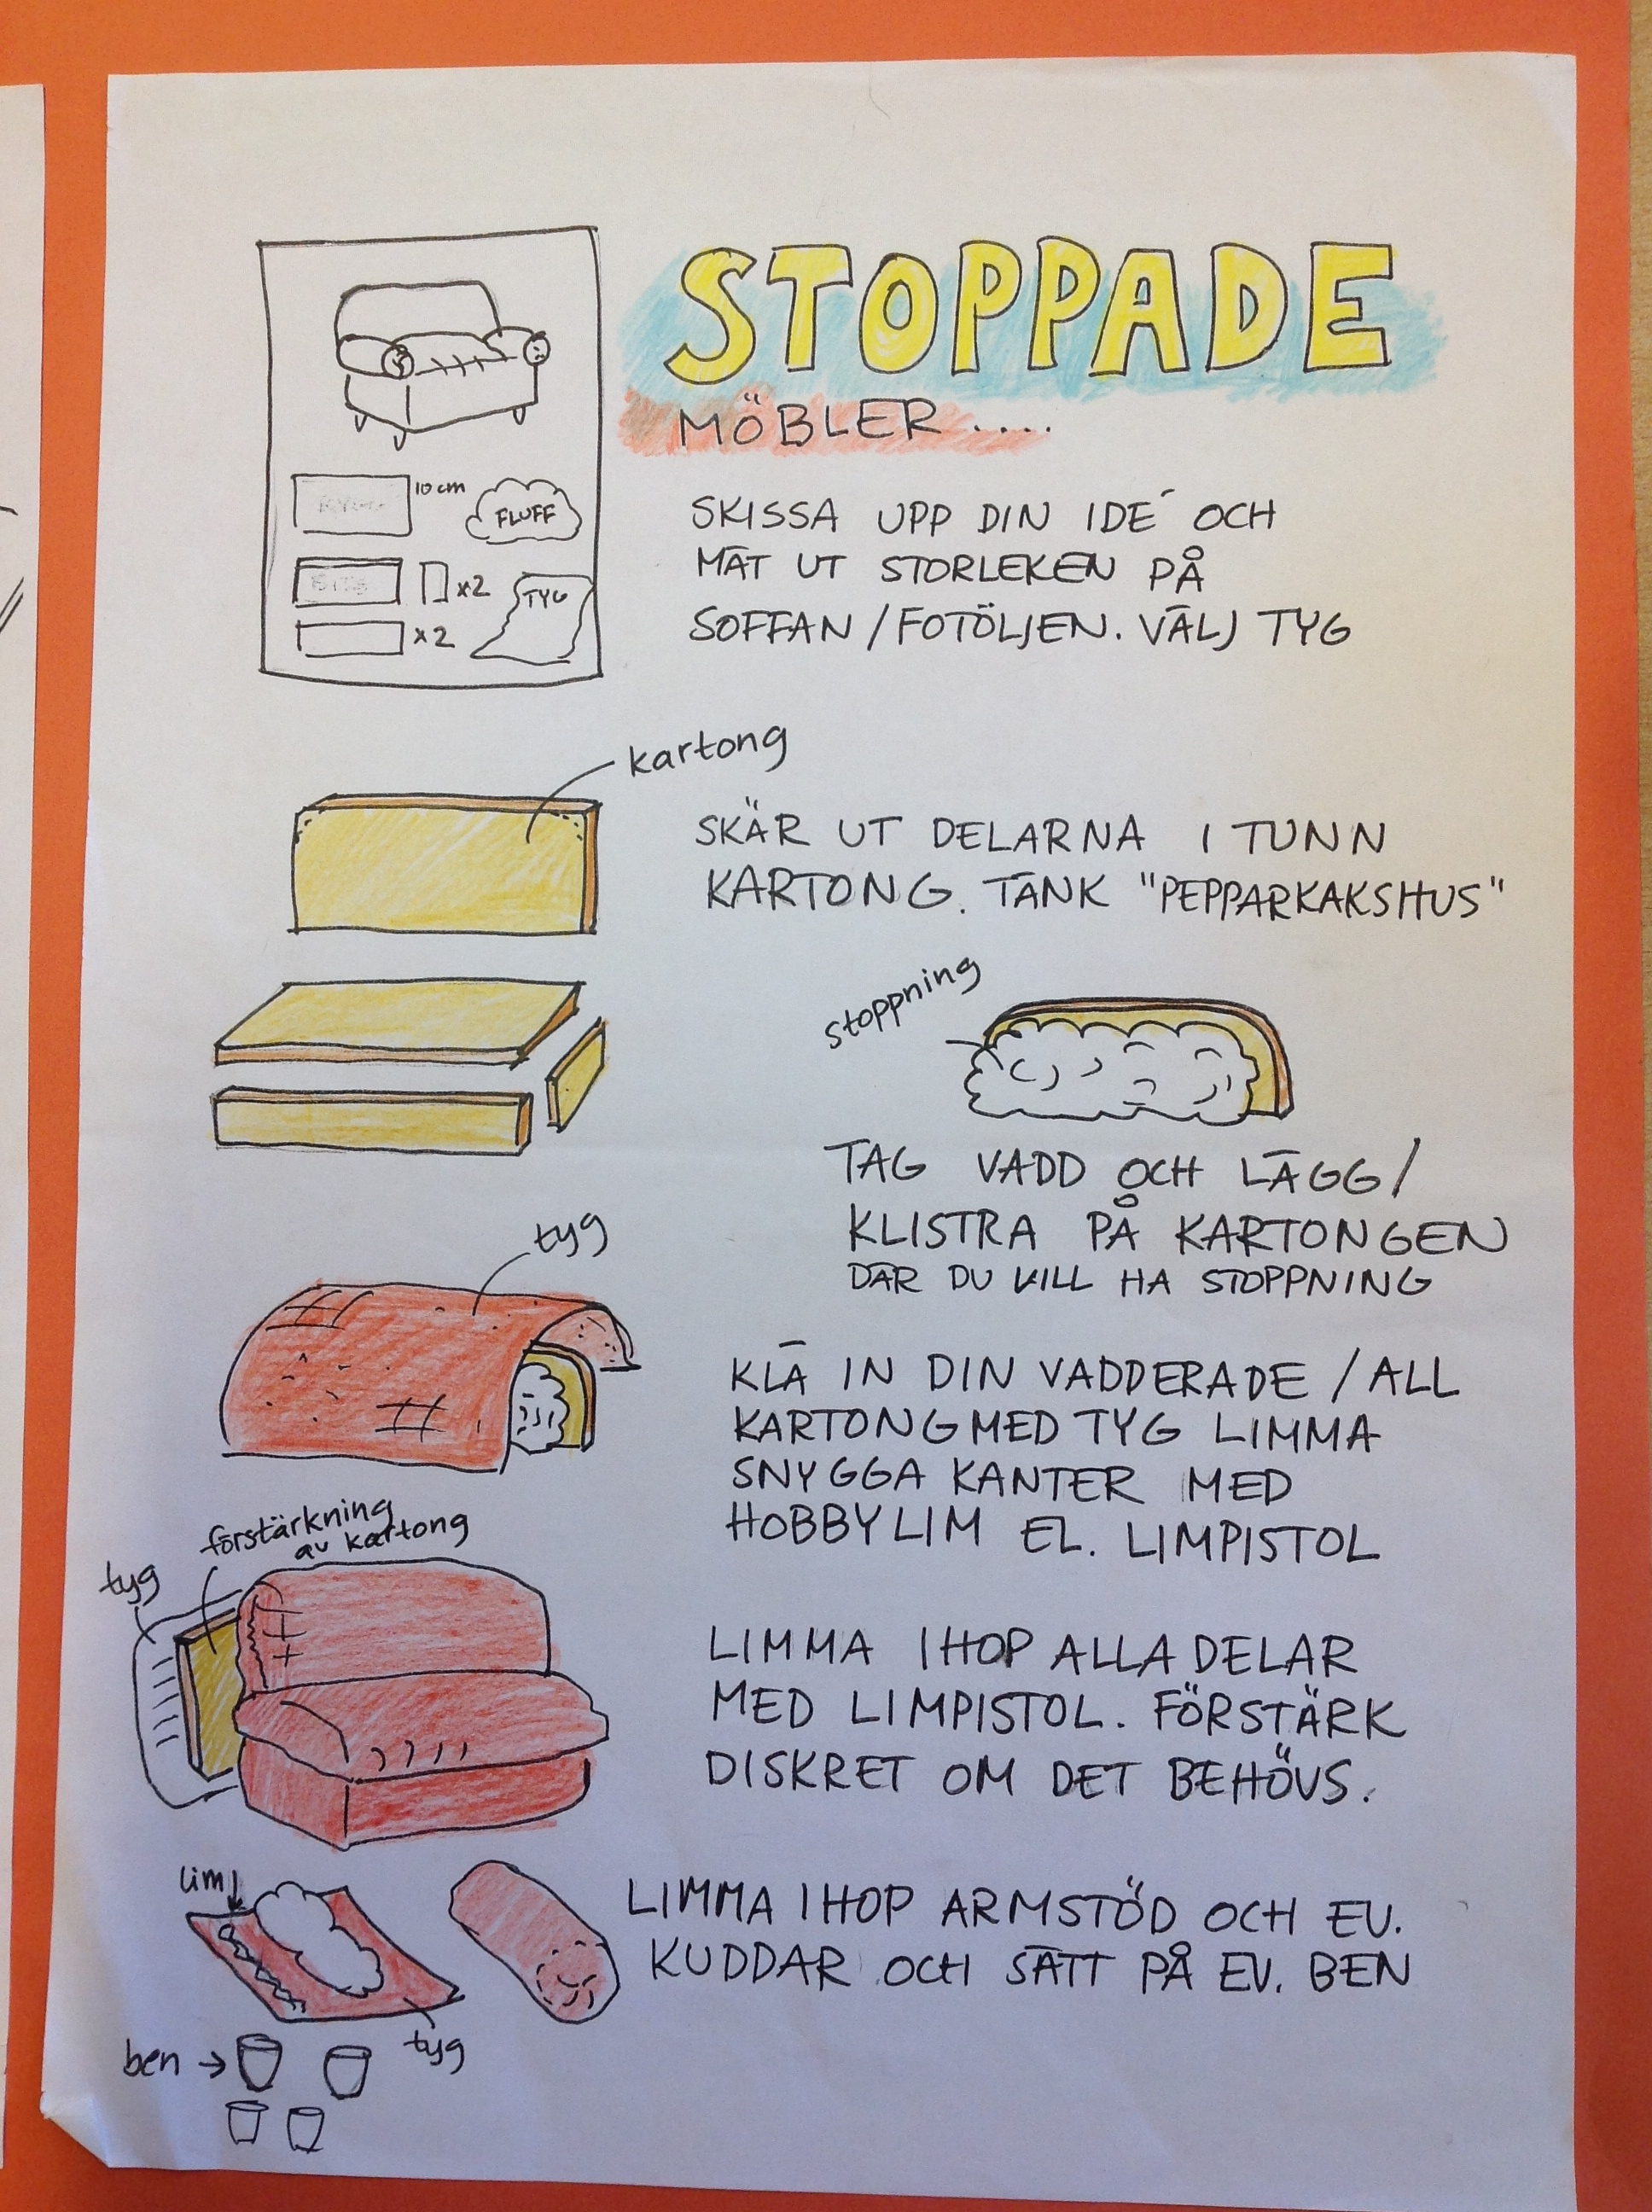 STOPPADE
MÖBLER....
10 cm
FLUFF
x2
TYG
x2
SKISSA UPP DIN IDÉ OCH
MÄT UT STORLEKEN PÅ
SOFFAN / FOTÖLJEN. VÄLJ TYG
kartong
SKÄR UT DELARNA I TUNN
KARTONG. TÄNK "PEPPARKAKSHUS"
stoppning
TAG VADD OCH LÄGG/
KLISTRA PÅ KARTONGEN
DÄR DU VILL HA STOPPNING
tyg
KLÄ IN DIN VADDERADE / ALL
KARTONG MED TYG LIMMA
SNYGGA KANTER MED
HOBBYLIM EL. LIMPISTOL
förstärkning
av kartong
tyg
LIMMA IHOP ALLA DELAR
MED LIMPISTOL. FÖRSTÄRK
DISKRET OM DET BEHÖVS.
lim
LIMMA IHOP ARMSTÖD OCH EV.
KUDDAR OCH SÄTT PÅ EV. BEN
tyg
ben →